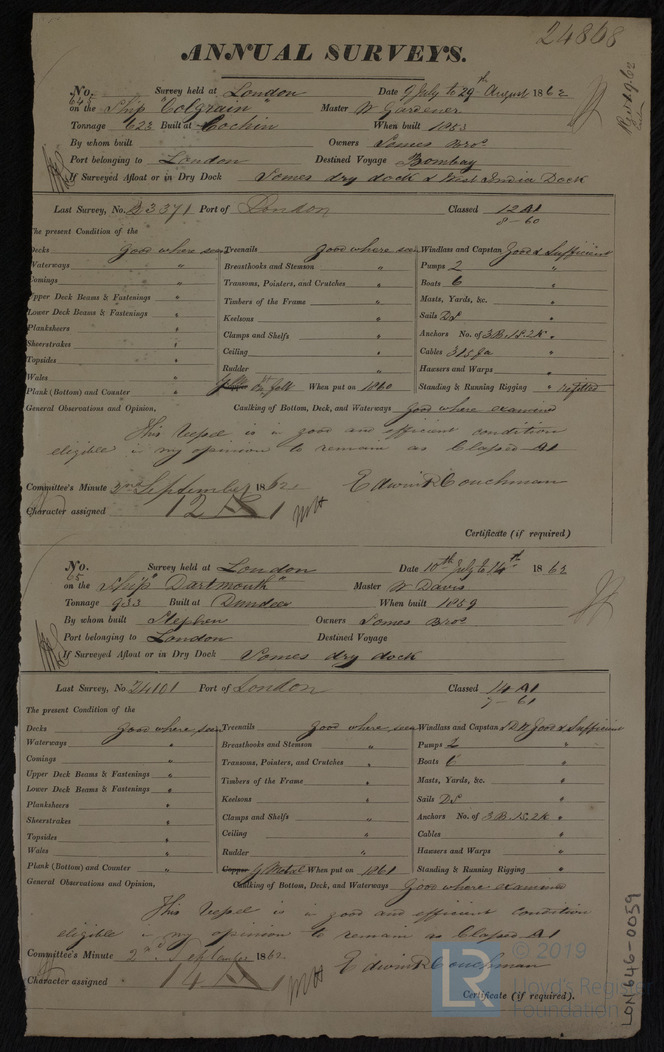 24868
ANNUAL SURVEYS.
No. 645 Survey held at London Date 9 July to 29th August 1862
on the Ship "Colgrain" Master W Gardener
Tonnage 623 Built at Cochin When built 1853
By whom built Owners Somes Bros
Port belonging to London Destined Voyage Bombay
If Surveyed Afloat or in Dry Dock Somes dry dock & West India Dock
Last Survey, No. 23371 Port of London Classed 12 A1
8-60
The present Condition of the
Decks good where seen Treenails good where seen Windlass and Capstan Good & Sufficient
Waterways " Breasthooks and Stemson " Pumps 2 "
Comings " Transoms, Pointers, and Crutches " Boats 6 "
Upper Deck Beams & Fastenings " Timbers of the Frame " Masts, Yards, &c. "
Lower Deck Beams & Fastenings " Keelsons " Sails DS "
Planksheers " Clamps and Shelfs " Anchors No. of 3B.1S.2K "
Sheerstrakes " Ceiling " Cables "
Topsides " Rudder " Hawsers and Warps "
Wales "
Plank (Bottom) and Counter " When put on 1860 Standing & Running Rigging refitted
General Observations and Opinion, Caulking of Bottom, Deck, and Waterways Good where examined
This Vessel is in good and efficient condition
eligible in my opinion to remain as Classed A1
Committee's Minute 2nd September 1862 Edwin R Couchman
Character assigned 12 A1
Certificate (if required)
No. 65 Survey held at London Date 10th July to 14th 1862
on the Ship "Dartmouth" Master W Davis
Tonnage 933 Built at Dundee When built 1859
By whom built Stephen Owners Somes Bros
Port belonging to London Destined Voyage
If Surveyed Afloat or in Dry Dock Somes dry dock
Last Survey, No 24101 Port of London Classed 14 A1
7-61
The present Condition of the
Decks good where seen Treenails good where seen Windlass and Capstan Good & Sufficient
Waterways " Breasthooks and Stemson " Pumps 2 "
Comings " Transoms, Pointers, and Crutches " Boats 6 "
Upper Deck Beams & Fastenings " Timbers of the Frame " Masts, Yards, &c. "
Lower Deck Beams & Fastenings " Keelsons " Sails DS "
Planksheers " Clamps and Shelfs " Anchors No. of 3B.1S.2K "
Sheerstrakes " Ceiling " Cables "
Topsides " Rudder " Hawsers and Warps "
Wales "
Plank (Bottom) and Counter " Copper Y Metal When put on 1861 Standing & Running Rigging "
General Observations and Opinion, Caulking of Bottom, Deck, and Waterways Good where examined
This Vessel is in good and efficient condition
eligible in my opinion to remain as Classed A1
Committee's Minute 2nd September 1862 Edwin R Couchman
Character assigned 14 A1
Certificate (if required).
LON646-0059
LR © 2019
Lloyd's Register
Foundation